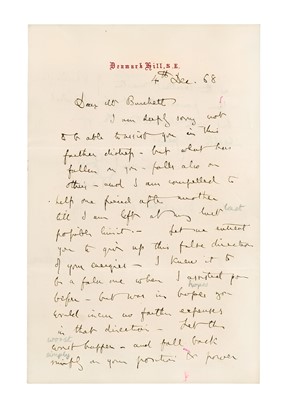 Denmark Hill, S.E.
4th Dec. 68
Dear Mr Burchett
I am deeply sorry not
to be able to assist you in this
farther distress - but what has
fallen on you - falls also on
others - and I am compelled to
help one friend after another
till I am left at my last last
possible limit - Let me entreat
you to give up this false direction
of your energies - I knew it to
be a false one when I assisted you
hopes
before - but was in hopes you
would incur no farther expenses
in that direction - Let the
worst
worst happen - and fall back
simply
simply on your position & power